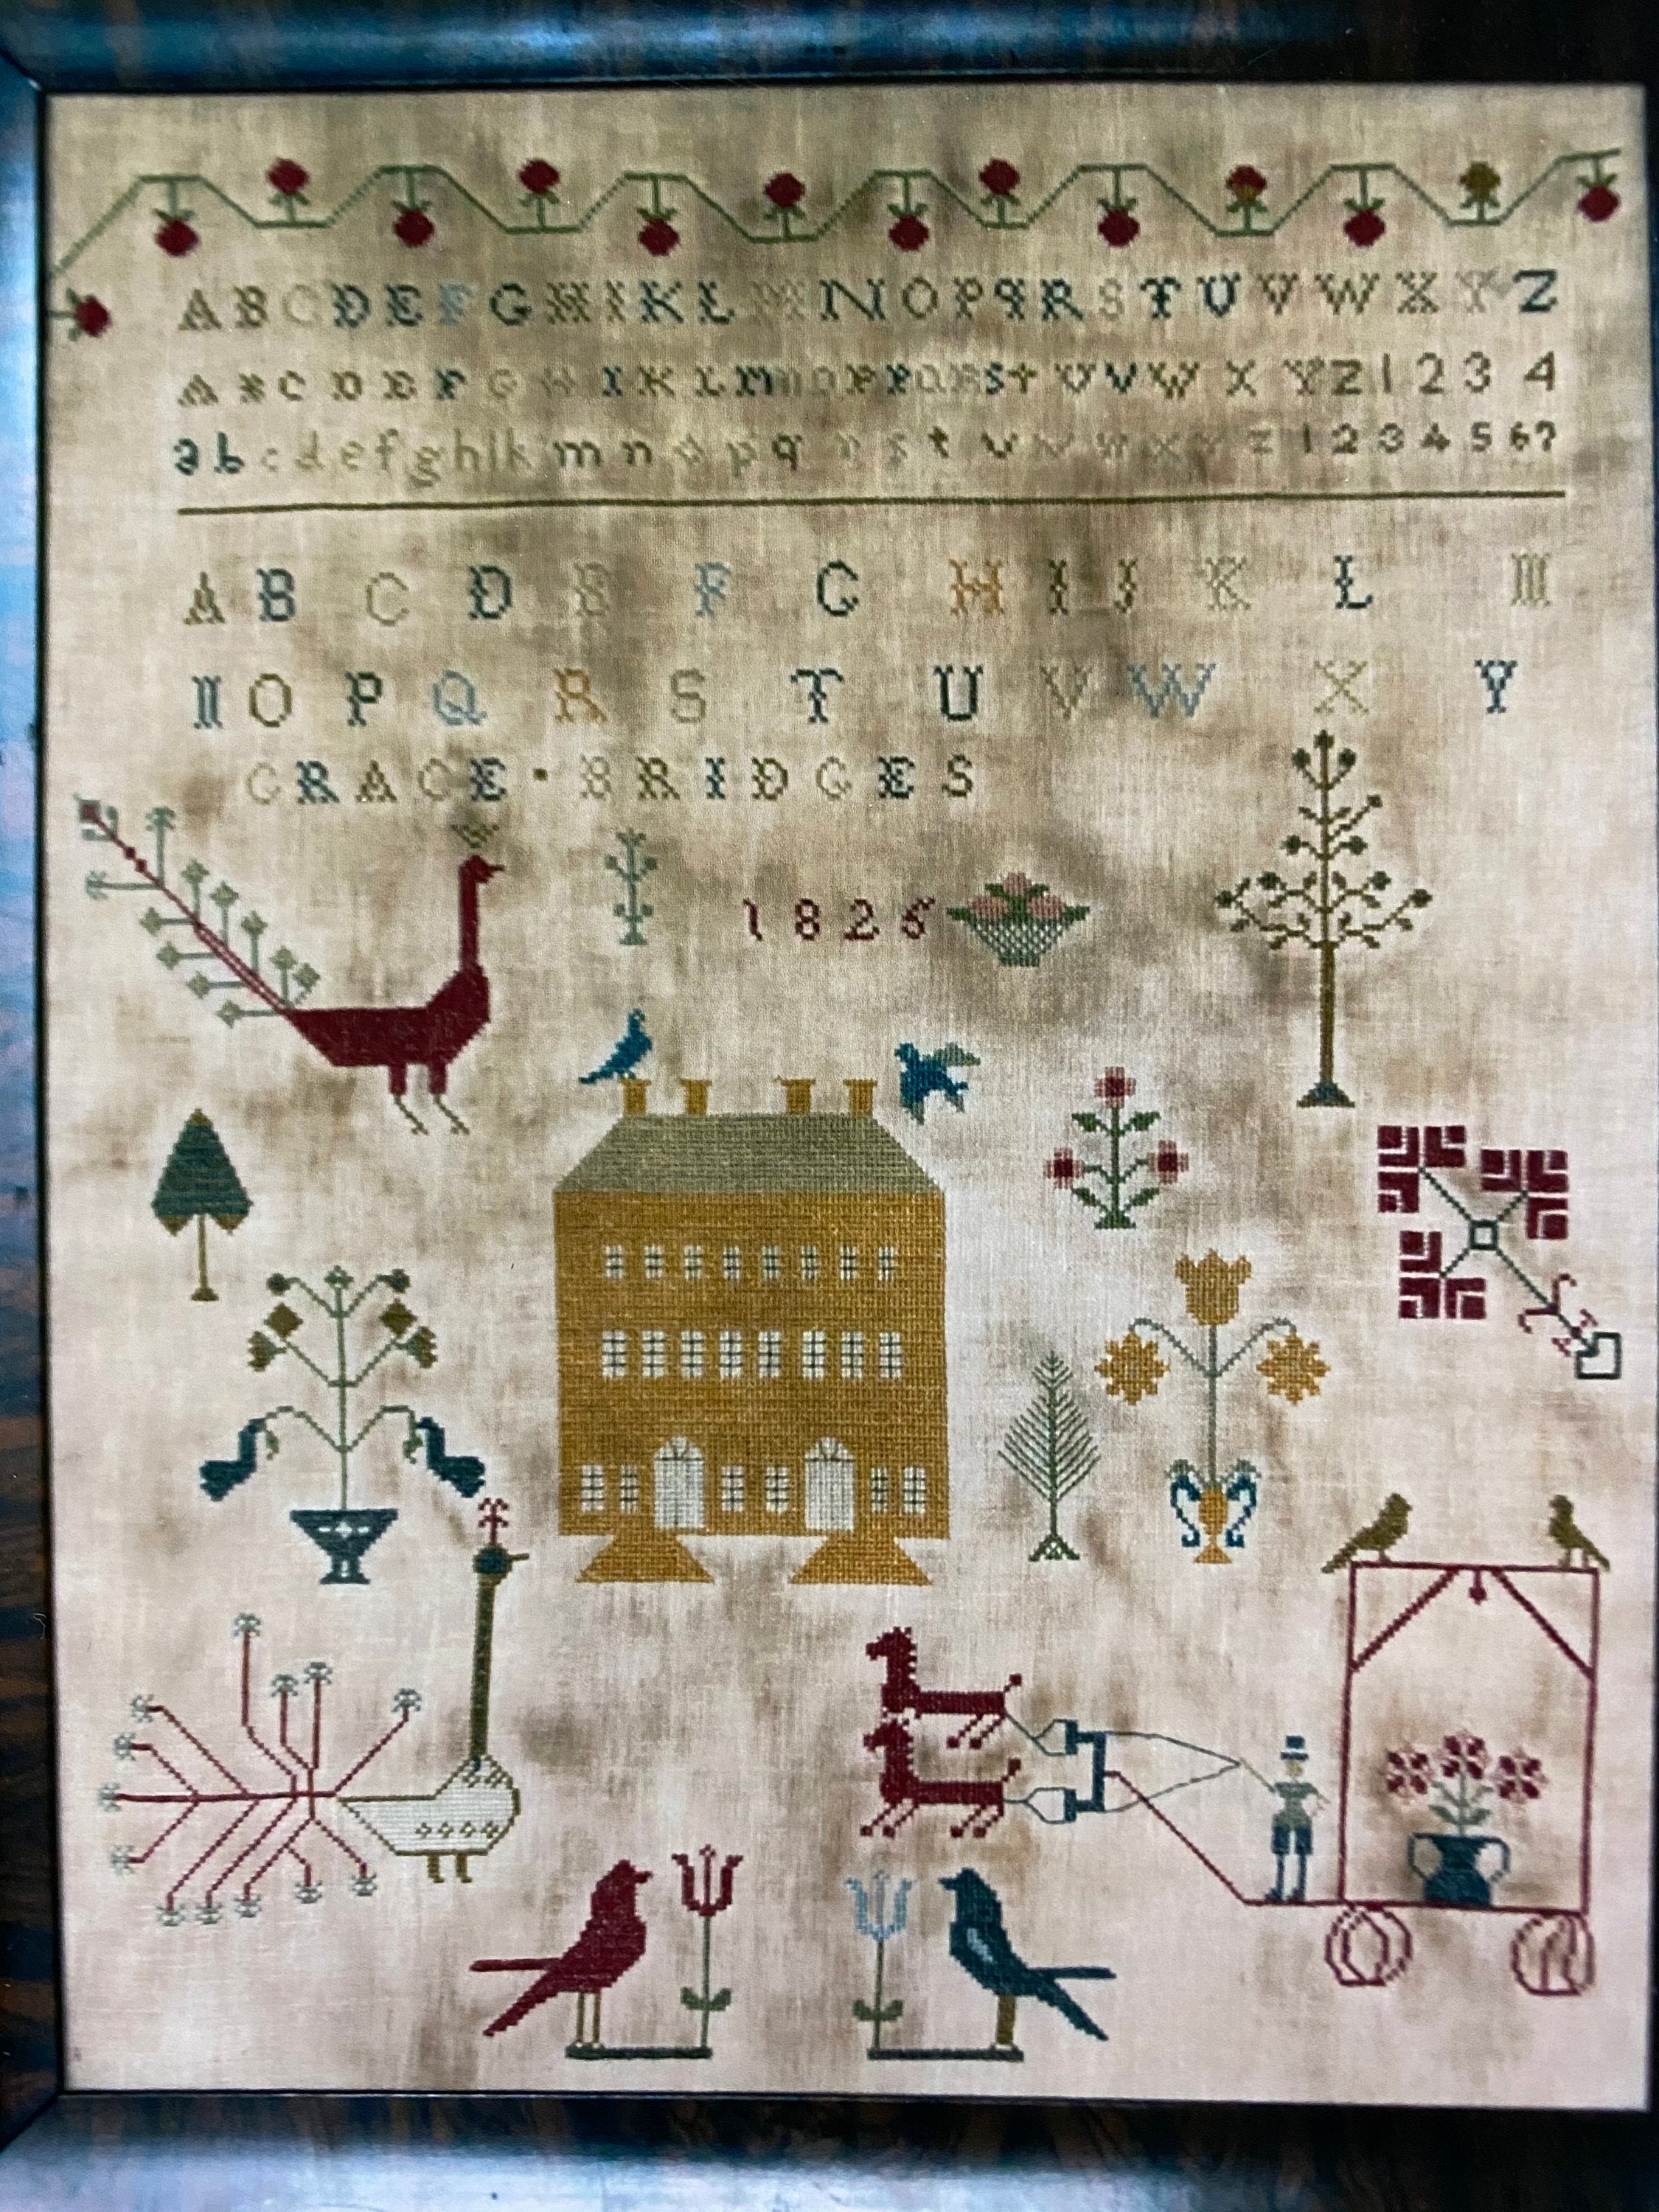 A B C D E F G H I K L M N O P q R S T U V W X Y Z
A B C D E F G H I K L m n o P P Q R S t U V W X Y Z 1 2 3 4
a b c d e f g h i k m n o p q s t v w x y z 1 2 3 4 5 6 7
A B C D E F G H I J K L M
N O P Q R S T U V W X Y
GRACE · BRIDGES
1826